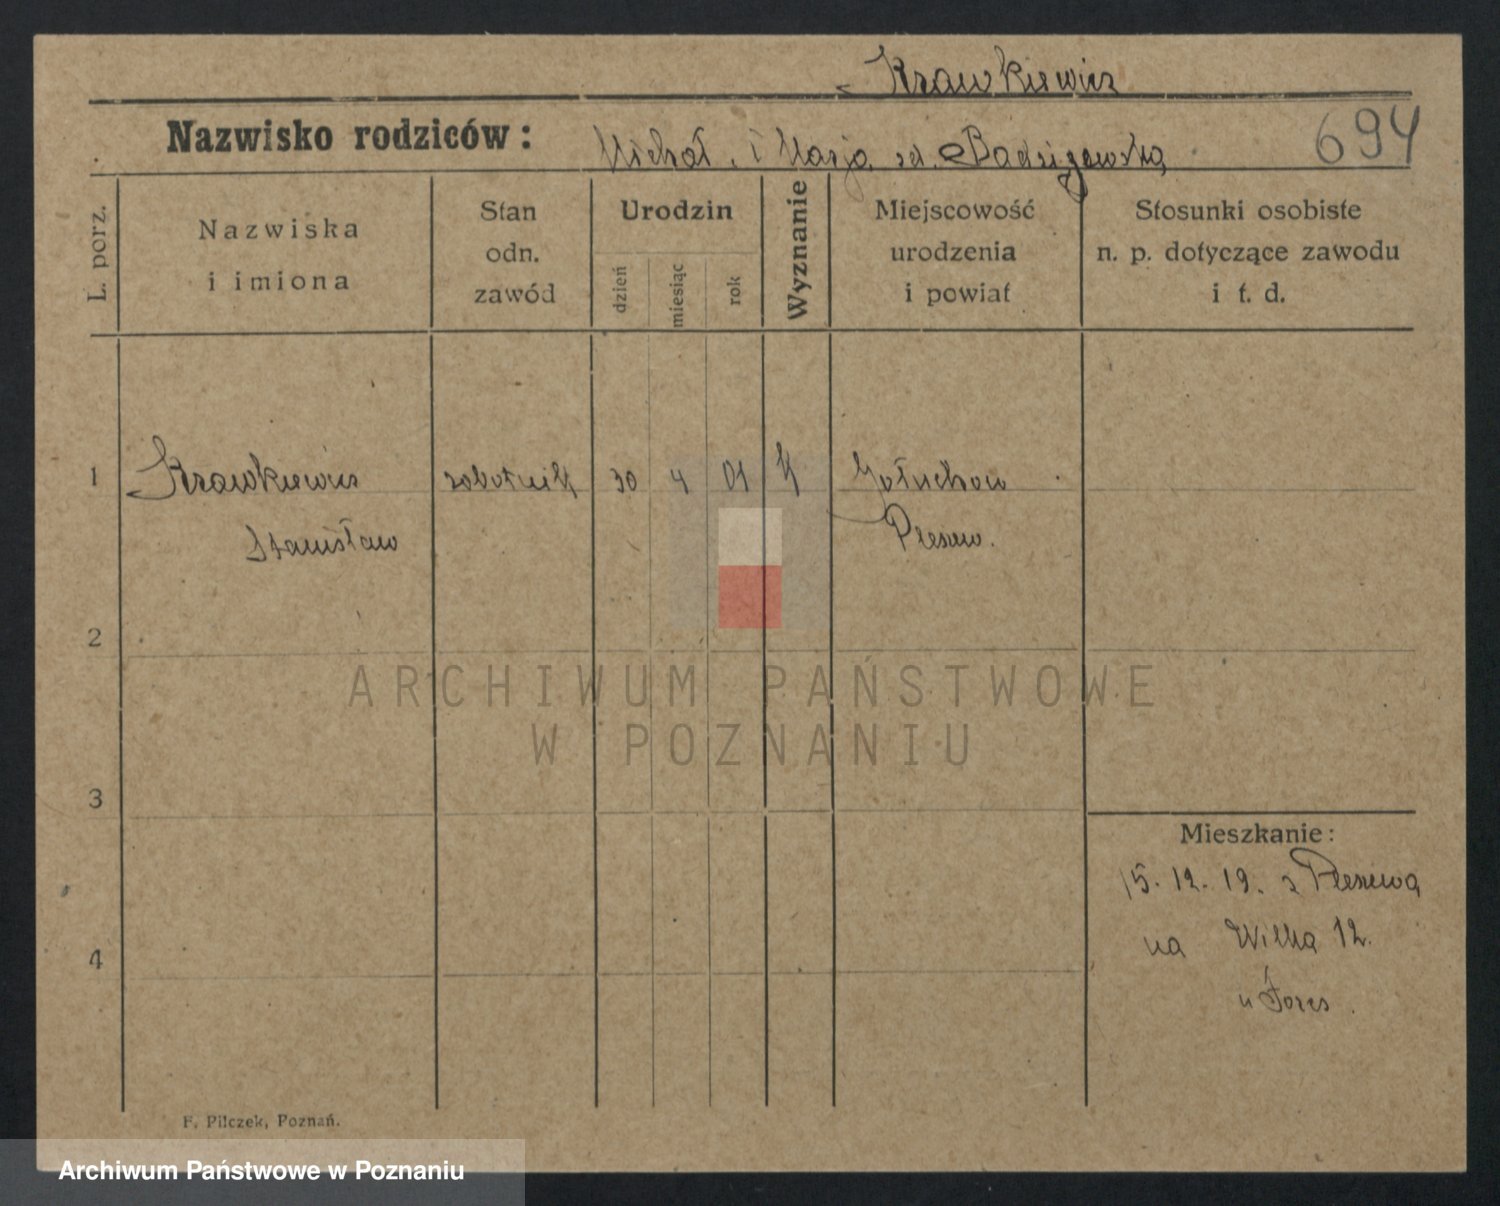 Krawkiewicz
Nazwisko rodziców: Michał i Marja zd. Badzigowska
694
L. porz.
Nazwiska i imiona
Stan odn. zawód
Urodzin
dzień
miesiąc
rok
Wyznanie
Miejscowość urodzenia i powiat
Stosunki osobiste n. p. dotyczące zawodu i t. d.
1 Krawkiewicz robotnik 30 4 01 K Gołuchow
Stanisław Pleszew.
2
ARCHIWUM PAŃSTWOWE
W POZNANIU
3
Mieszkanie:
15. 12. 19. z Pleszewa
na Wilka 12.
4
u
F. Pilczek, Poznań.
Archiwum Państwowe w Poznaniu